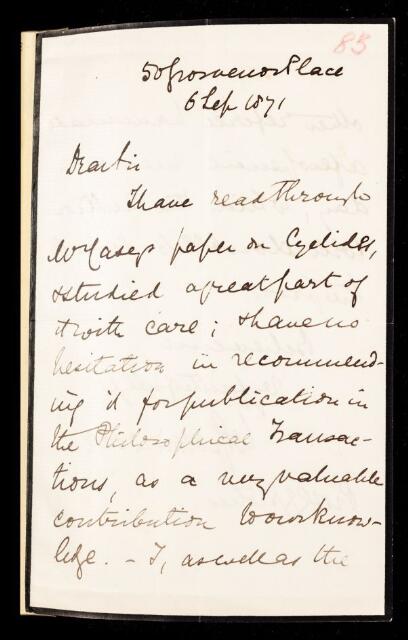 83
50 Grosvenor Place
6 Sep 1871
Dear Sir
I have read through
Mr Casey's paper on Cyclides,
& studied a great part of
it with care; & have no
hesitation in recommend-
ing it for publication in
the Philosophical Transac-
tions, as a very valuable
contribution to our know-
ledge. - I, as well as the